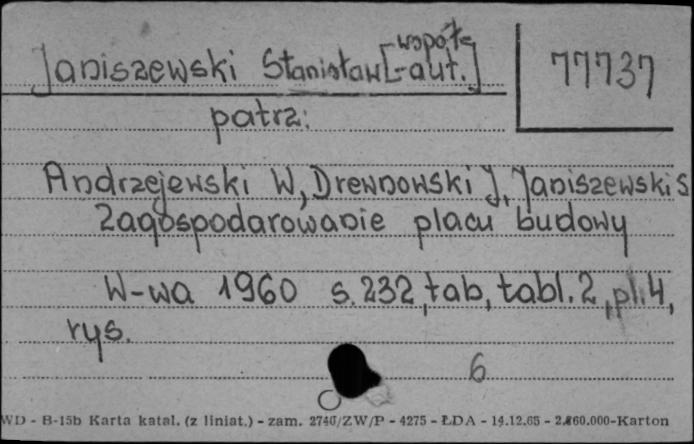 Janiszewski Stanisław [współ-aut.]
77737
patrz:
Andrzejewski W, Drewnowski J, Janiszewski S
Zagospodarowanie placu budowy
W-wa 1960 s. 232, tab, tabl. 2, pl. 4,
rys.
6
WD - B-15b Karta katal. (z liniat.) - zam. 2740/ZW/P - 4275 - ŁDA - 14.12.65 - 2.860.000-Karton